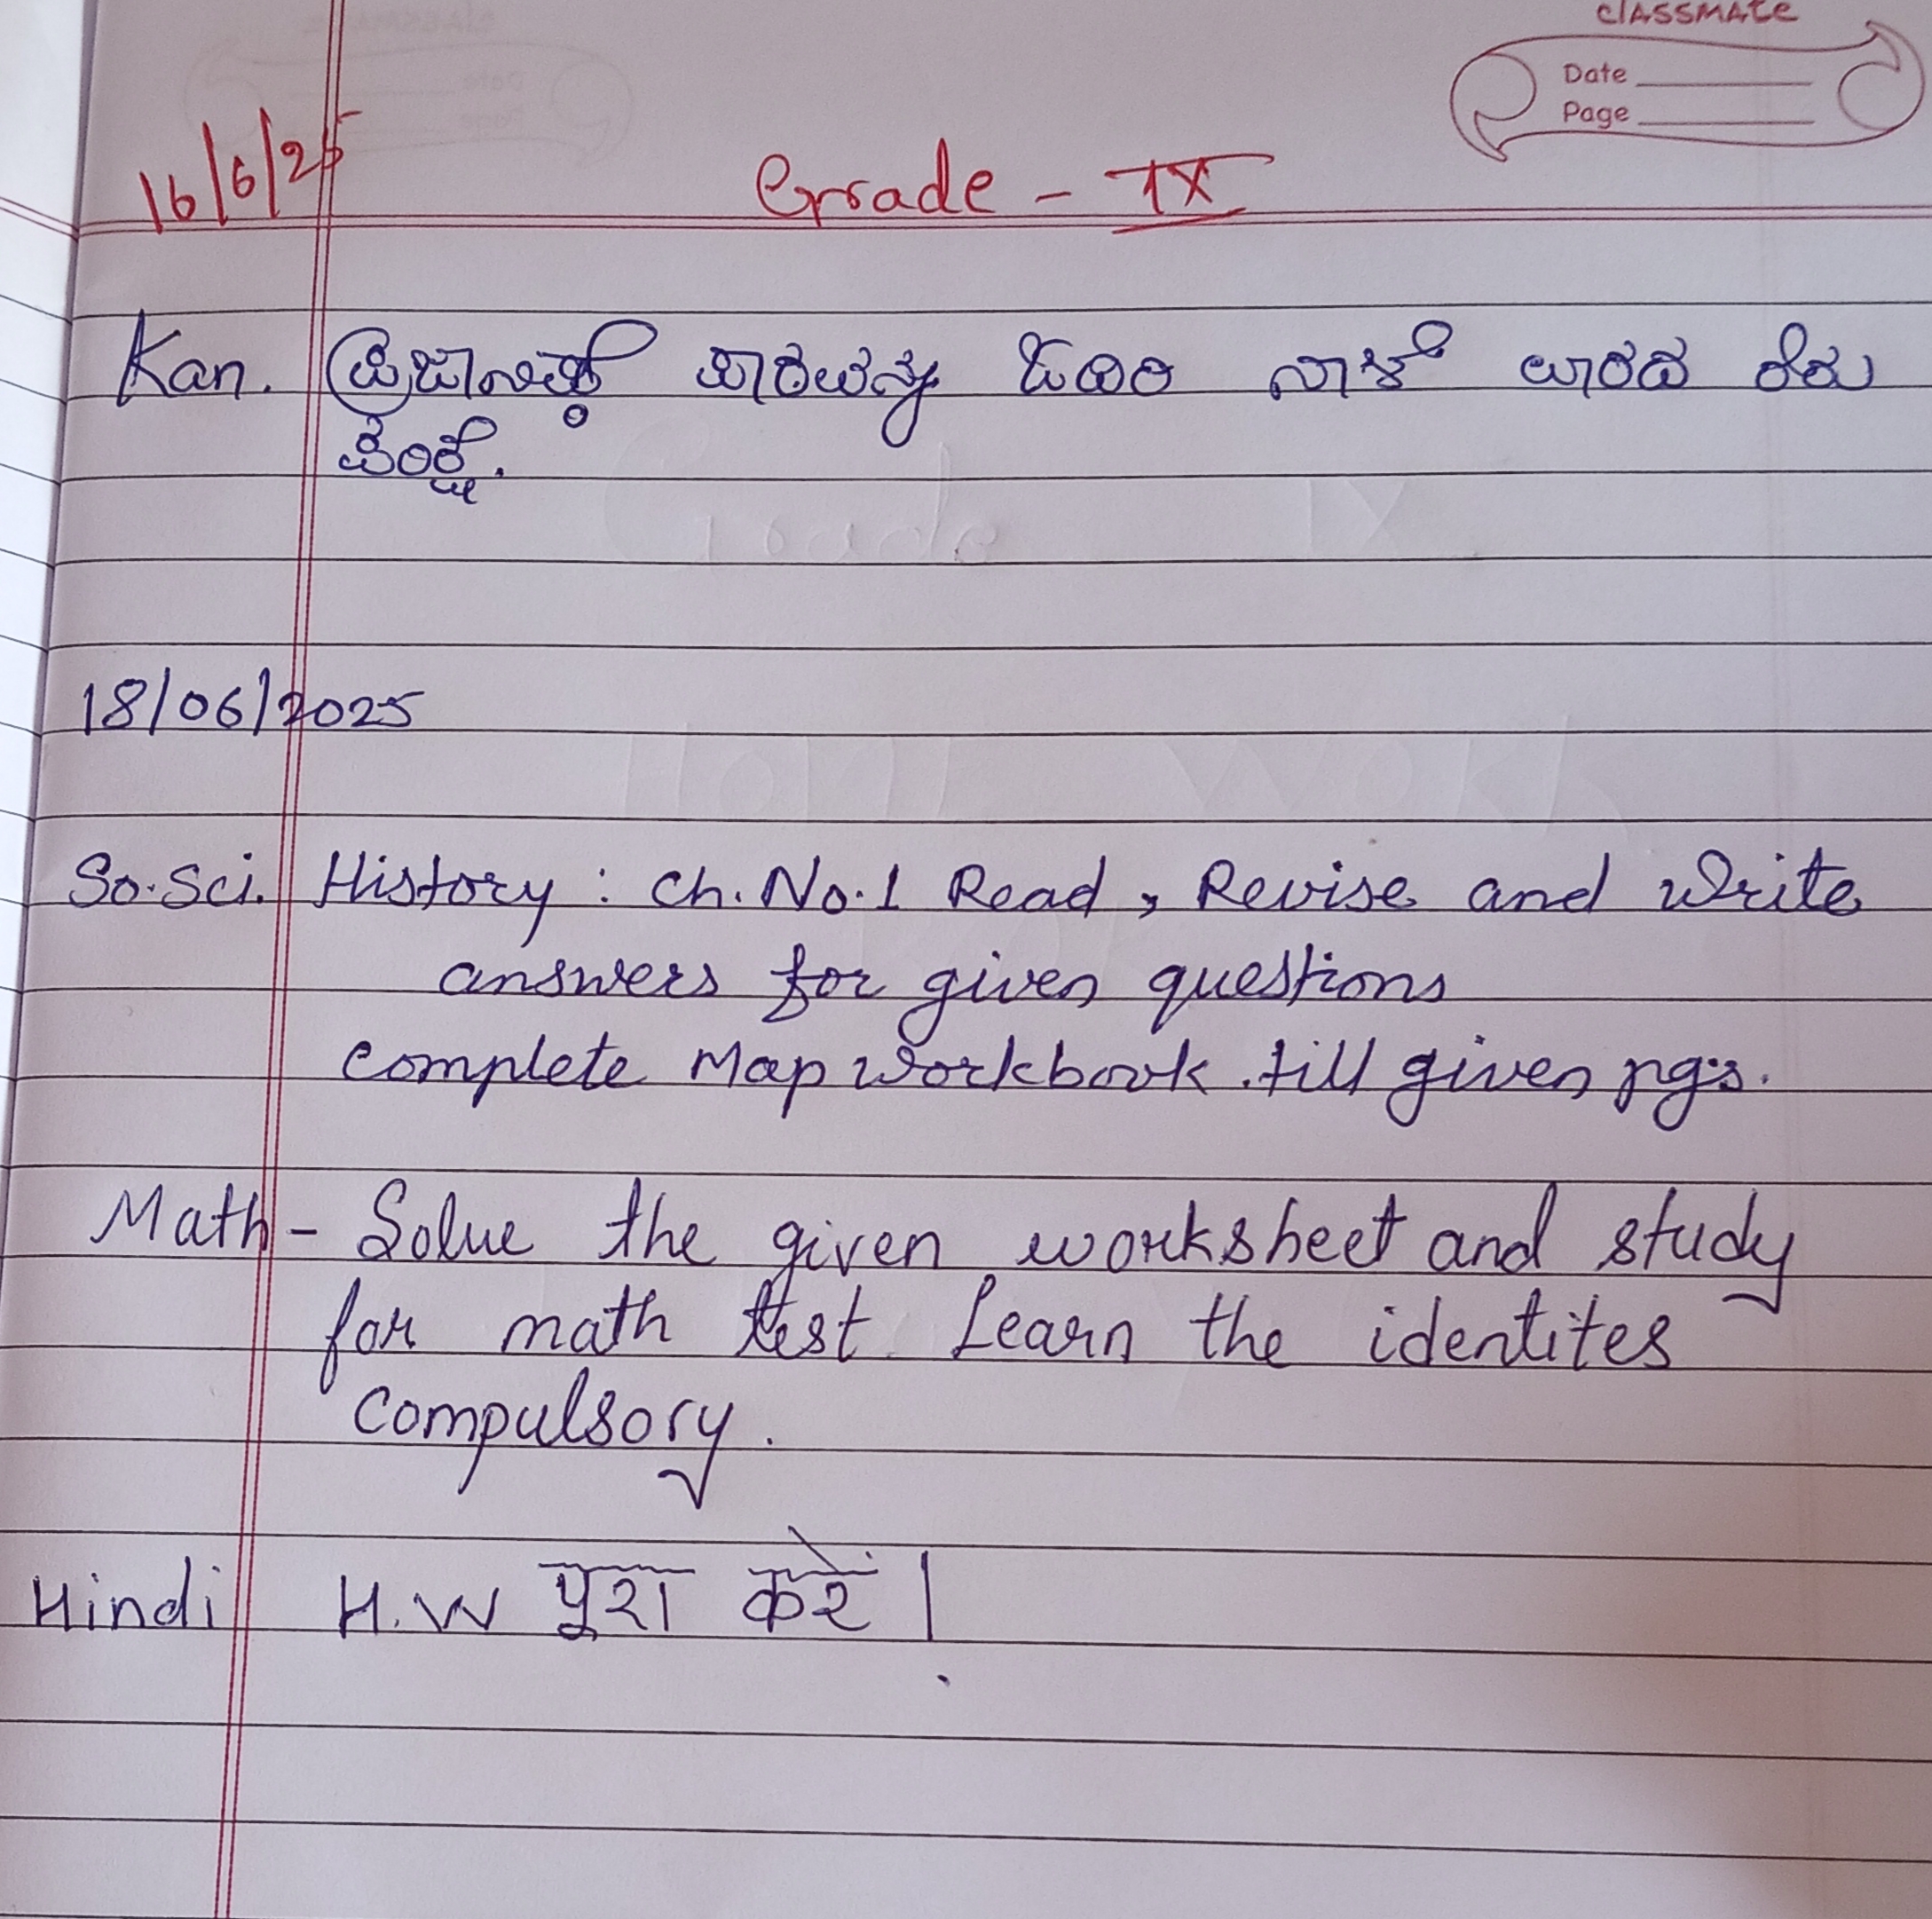 CLASSMATE
Date
Page
16/6/25
Grade - IX
Kan. ಪ್ರಜಾನಿಷ್ಠೆ ಪಾಠವನ್ನು ಓದಿರಿ ನಾಳೆ ವಾರದ ಕಿರು
ಪರೀಕ್ಷೆ.
18/06/2025
So.Sci. History : Ch. No.1 Read, Revise and write
answers for given questions
complete Map workbook till given pg's.
Math - Solve the given worksheet and study
for math test Learn the identites
compulsory.
Hindi H.W पूरा करें |